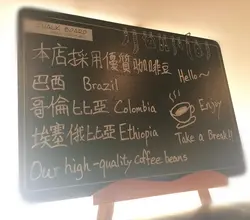 本店採用優質咖啡豆
Hello~
巴西 Brazil
哥倫比亞 Colombia
Enjoy
埃塞俄比亞 Ethiopia
Take a Break!!
Our high-quality coffee beans